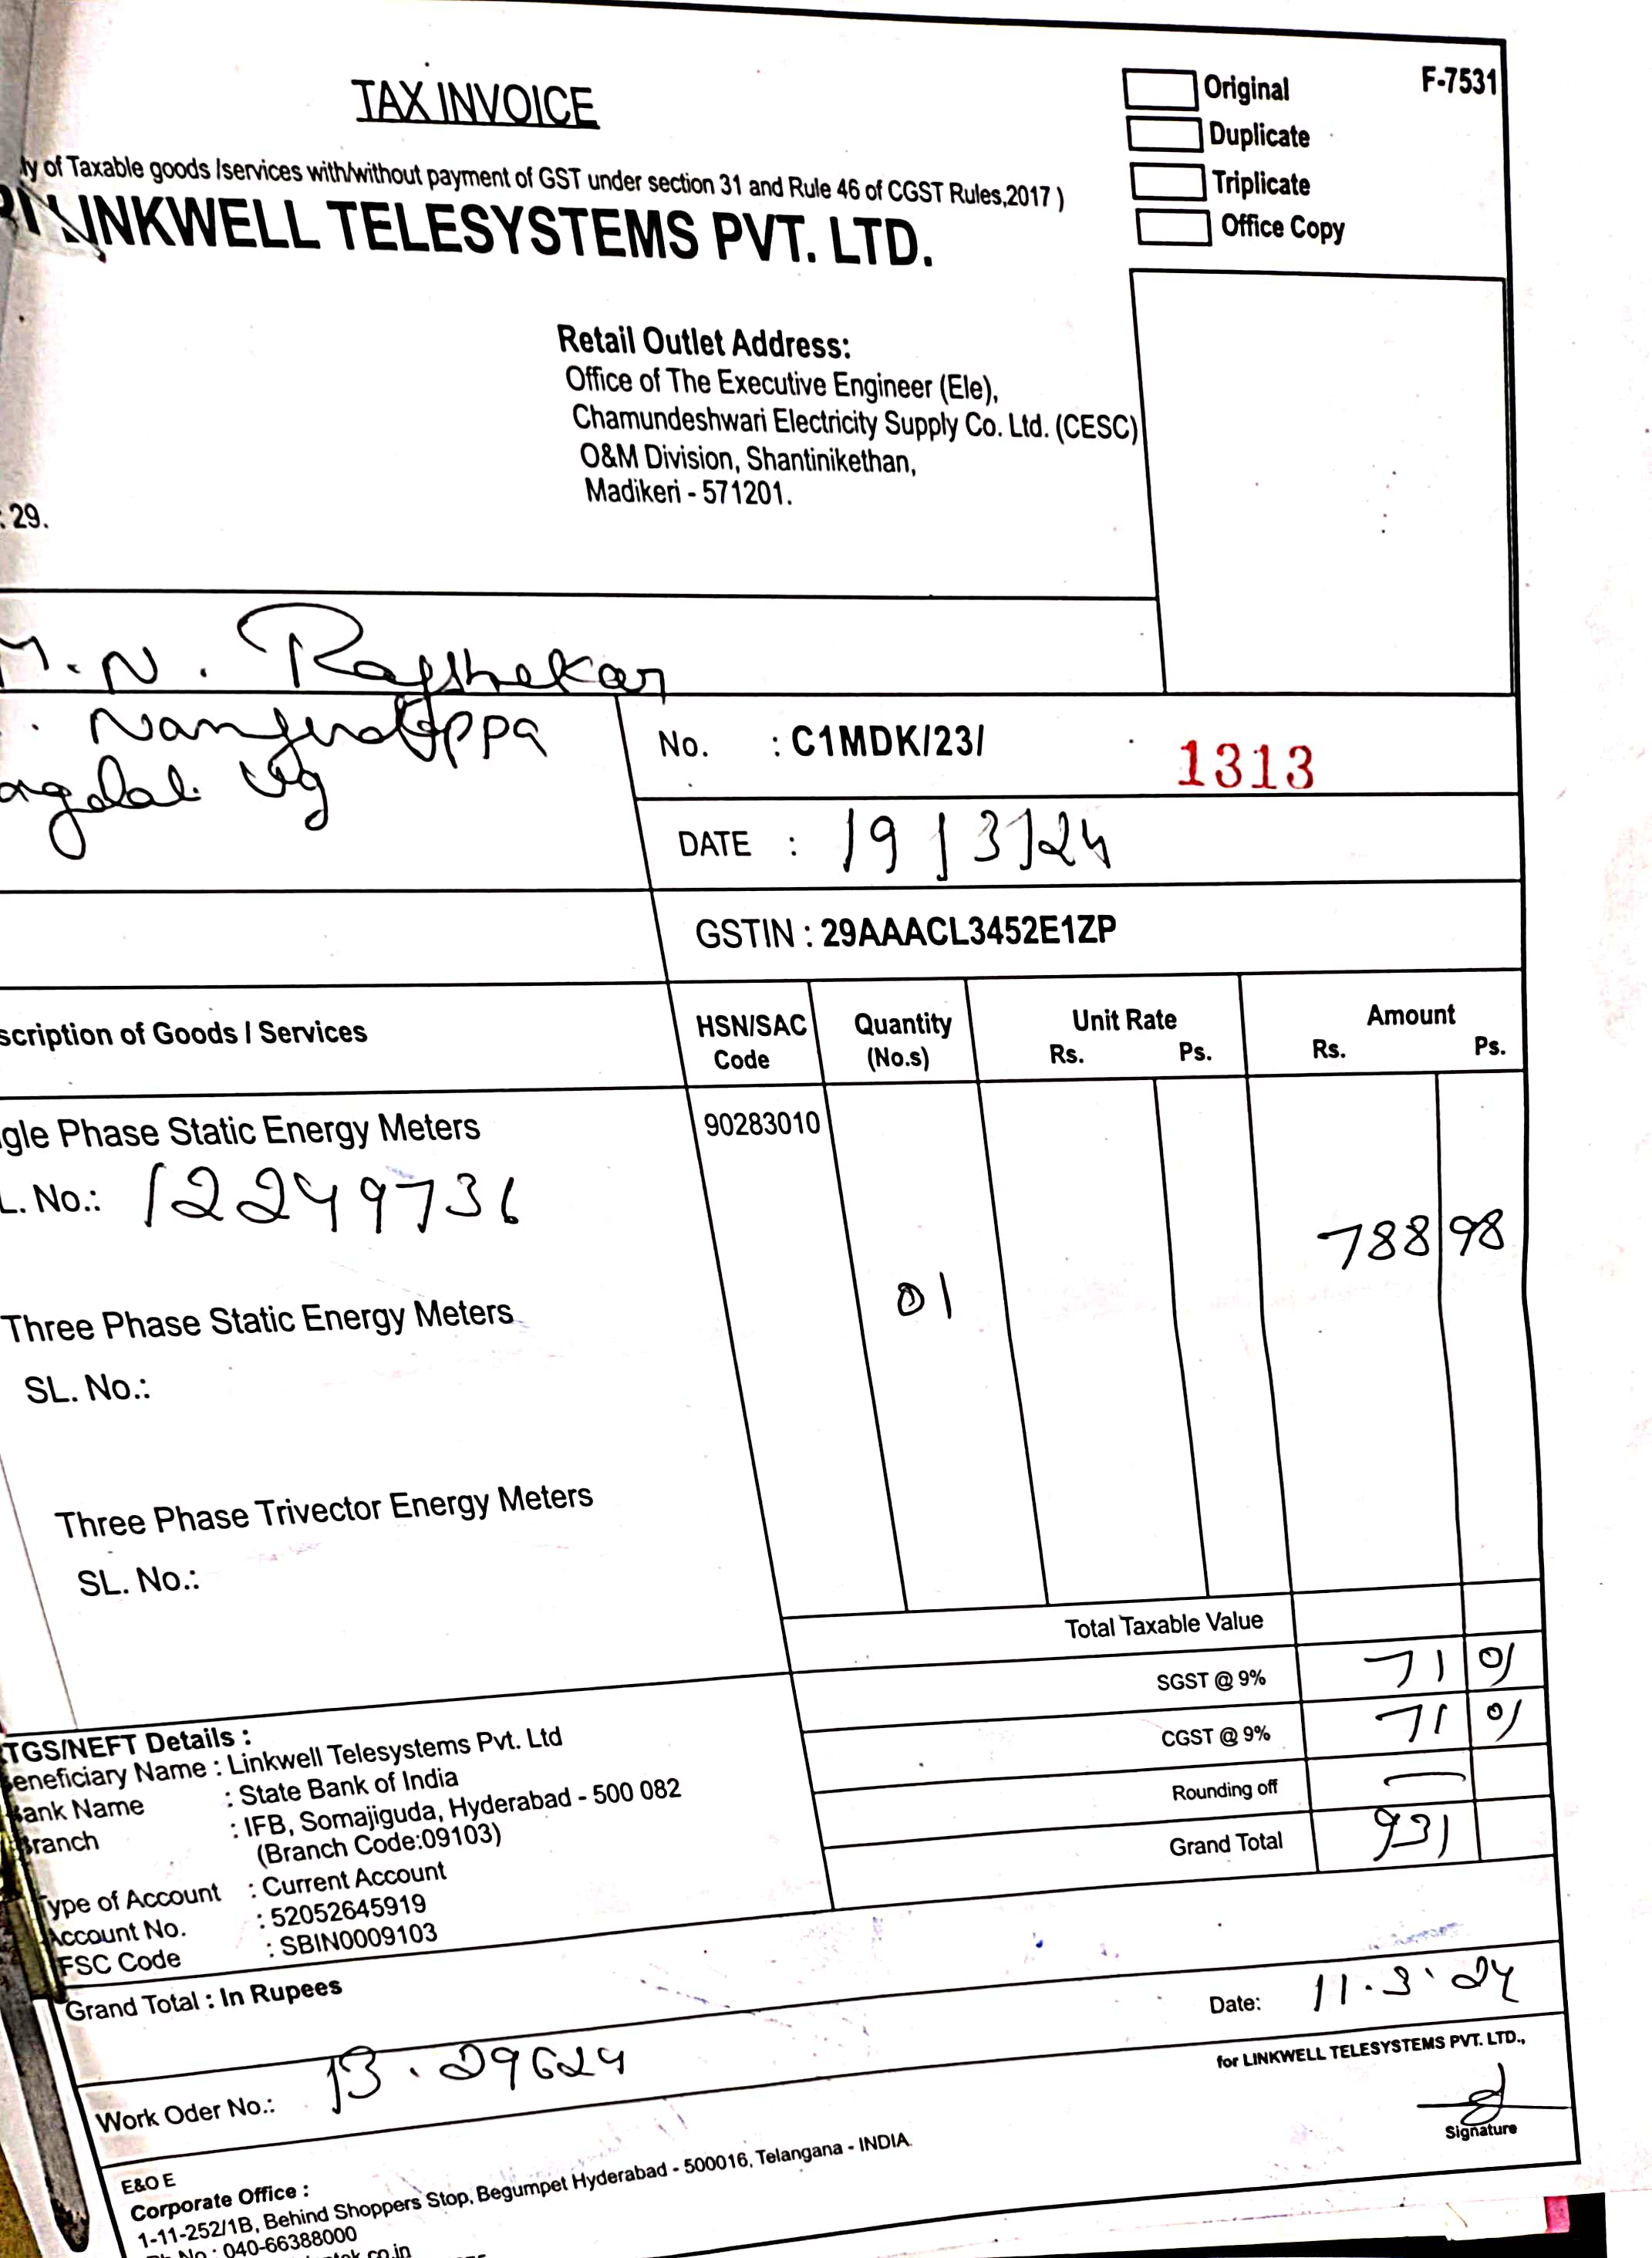 TAX INVOICE
Original
F-7531
Duplicate
Triplicate
Office Copy
of Taxable goods /services with/without payment of GST under section 31 and Rule 46 of CGST Rules,2017 )
LINKWELL TELESYSTEMS PVT. LTD.
Retail Outlet Address:
Office of The Executive Engineer (Ele),
Chamundeshwari Electricity Supply Co. Ltd. (CESC)
O&M Division, Shantinikethan,
Madikeri - 571201.
: 29.
M.N. Rajshekar
No. : C1MDK/23/ 1313
DATE : 19/3/24
GSTIN : 29AAACL3452E1ZP
scription of Goods / Services
HSN/SAC Code
Quantity (No.s)
Unit Rate
Rs. Ps.
Amount
Rs. Ps.
gle Phase Static Energy Meters
90283010
L. No.: 12249736
788 98
01
Three Phase Static Energy Meters
SL. No.:
Three Phase Trivector Energy Meters
SL. No.:
Total Taxable Value
SGST @ 9% 71 01
CGST @ 9% 71 01
Rounding off —
Grand Total 931
TGS/NEFT Details :
eneficiary Name : Linkwell Telesystems Pvt. Ltd
ank Name : State Bank of India
Branch : IFB, Somajiguda, Hyderabad - 500 082
(Branch Code:09103)
Type of Account : Current Account
Account No. : 52052645919
FSC Code : SBIN0009103
Grand Total : In Rupees
Date: 11.3.24
for LINKWELL TELESYSTEMS PVT. LTD.,
Work Oder No.: 13.29624
Signature
E&O E
Corporate Office :
1-11-252/1B, Behind Shoppers Stop, Begumpet Hyderabad - 500016, Telangana - INDIA.
No : 040-66388000